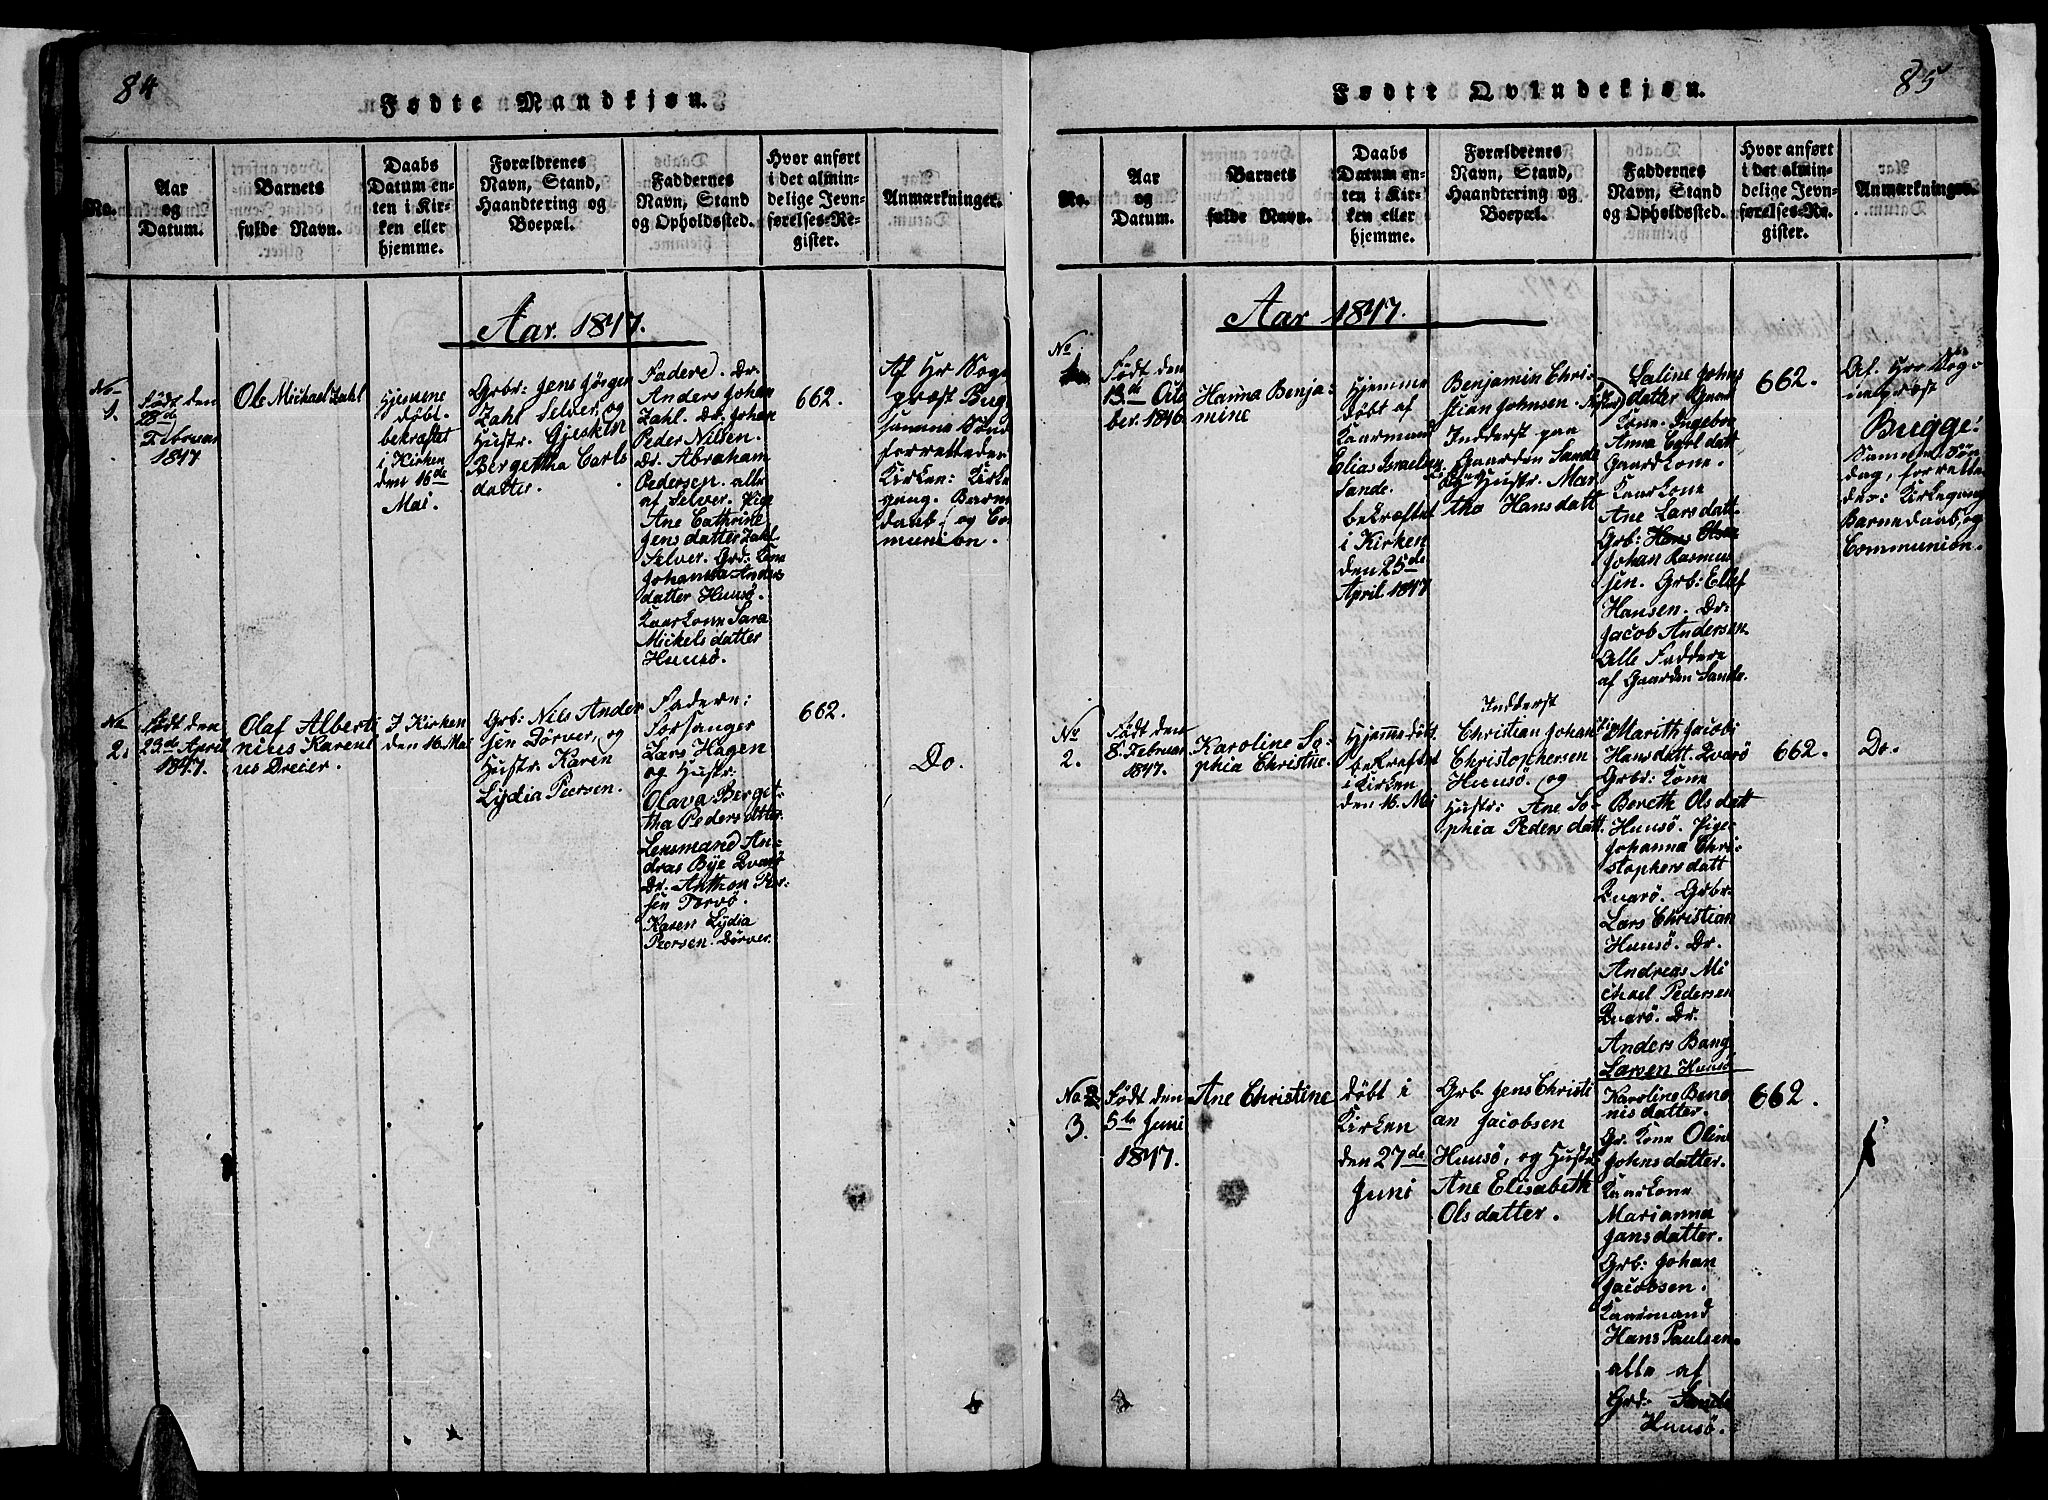 84
Fødte Mandkjøn.
No.
Aar
og
Datum.
Barnets
fulde Navn.
Daabs
Datum en-
ten i Kir-
ken eller
hjemme.
Forældrenes
Navn, Stand,
Haandtering og
Boepæl.
Faddernes
Navn, Stand
og Opholdssted.
Hvor anført
i det almin-
delige Jevn-
førelses-Re-
gister.
Anmærkninger.
Aar. 1847.
No
1.
Født den
28de
Februar
1847
Ole Michael Zahl
Hjemme
døbt.
bekræftet
i Kirken
den 16de
Mai.
Grbr: Jens Jörgen
Zahl Selver, og
Hustr. Gjesken
Bergetha Carls
datter.
Fadere. Dr.
Anders Johan
Zahl. Dr. Johan
Peder Nilsen.
Dr. Abraham
Pedersen. alle
af Selver. Pige
Ane Cathrine
Jens datter Zahl.
Selver. Grd: Kone
Johanna Anders
datter Huusö.
Kaarkone Sara
Mickels datter
Huusö.
662.
Af Hr Sogne
præst Bugge
samme Sön
forrettede
Kirken: Kirke
gang. Barne
daab, og Co
munion.
No
2.
Født den
23de April
1847.
Olaf Alberti
nius Kareni
us Dreier.
I Kirken
den 16. Mai
Grb: Nils Ander
sen Dørver, og
Hustr. Karen
Lydia Peersen.
Fadern:
Forsanger
Lars Hagen
og Hustr:
Olava Berget-
tha Peders datter
Lensmand An-
dras Bye Qvarö
Dr. Anthon Peer-
sen Torvö.
Karen Lydia
Peersen. Dørver.
662.
Do.
85
Fødte Qvindekjøn.
No.
Aar
og
Datum.
Barnets
fulde Navn.
Daabs
Datum en-
ten i Kir-
ken eller
hjemme.
Forældrenes
Navn, Stand,
Haandtering og
Boepæl.
Faddernes
Navn, Stand
og Opholdssted.
Hvor anført
i det almin-
delige Jevn-
førelses-Re-
gister.
Anmærkninger.
Aar 1847.
No
1.
Født den
13de Octo
ber. 1846
Hanna Benja-
mine
Hjemme
döbt af
Kaarmand
Elias Israelsen
Sande.
bekræftet
i Kirken
den 25de
April. 1847
Benjamin Chri-
stian Johnsen.
Inderst paa
Gaarden Sande
og Hustr. Mar
tha Hans datt
Saline Johns
datter Gaard
Kone. Ingebor
Anna Carl datt
Gaard Kone.
Kaarkone
Ane Lars datt.
Grb: Hans Olsen
Johan Rasmus
sen. Grb: Ellef
Hansen. Dr:
Jacob Andersen.
Alle Faddere
af Gaarden Sande.
662.
Af. Hrr Sog-
nepræst
Bugge:
Samme Søn
dag, forrette
des: Kirkegang
Barnedaab, og
Communion.
No
2.
Født den
8. Februar
1847.
Karoline So-
phia Christine.
Hjemme döbt
bekræftet
i Kirken
den 16. Mai
Indderst
Christian Johan
Christophersen
Huusö. og
Hustr: Ane So-
phia Peders datt.
Marith Jacobi
Hans datt. Qvarö
Grbr: Kone
Bereth Ols datt
Huusö. Pige
Johanna Chri-
stophers datt
Qvarö. Grbr.
Lars Christian
Huusö. Dr.
Andreas Mi
chael Pedersen
Qvarö. Dr.
Anders Bang
Larsen Huusö
662.
Do.
No
3.
Født den
5te Juni
1847.
Ane Christine
Döbt i
Kirken
den 27de
Juni
Grb. Jens Christi
an Jacobsen
Huusö, og Hustr
Ane Elisabeth
Ols datter.
Karoline Beno
nis datter.
Gr. Kone Olin
Johns datter.
Kaarkone
Marianna
Jans datter.
Grb: Johan
Jacobsen.
Kaarmand
Hans Paulsen.
alle af
Grd: Sande
Huusö.
662.